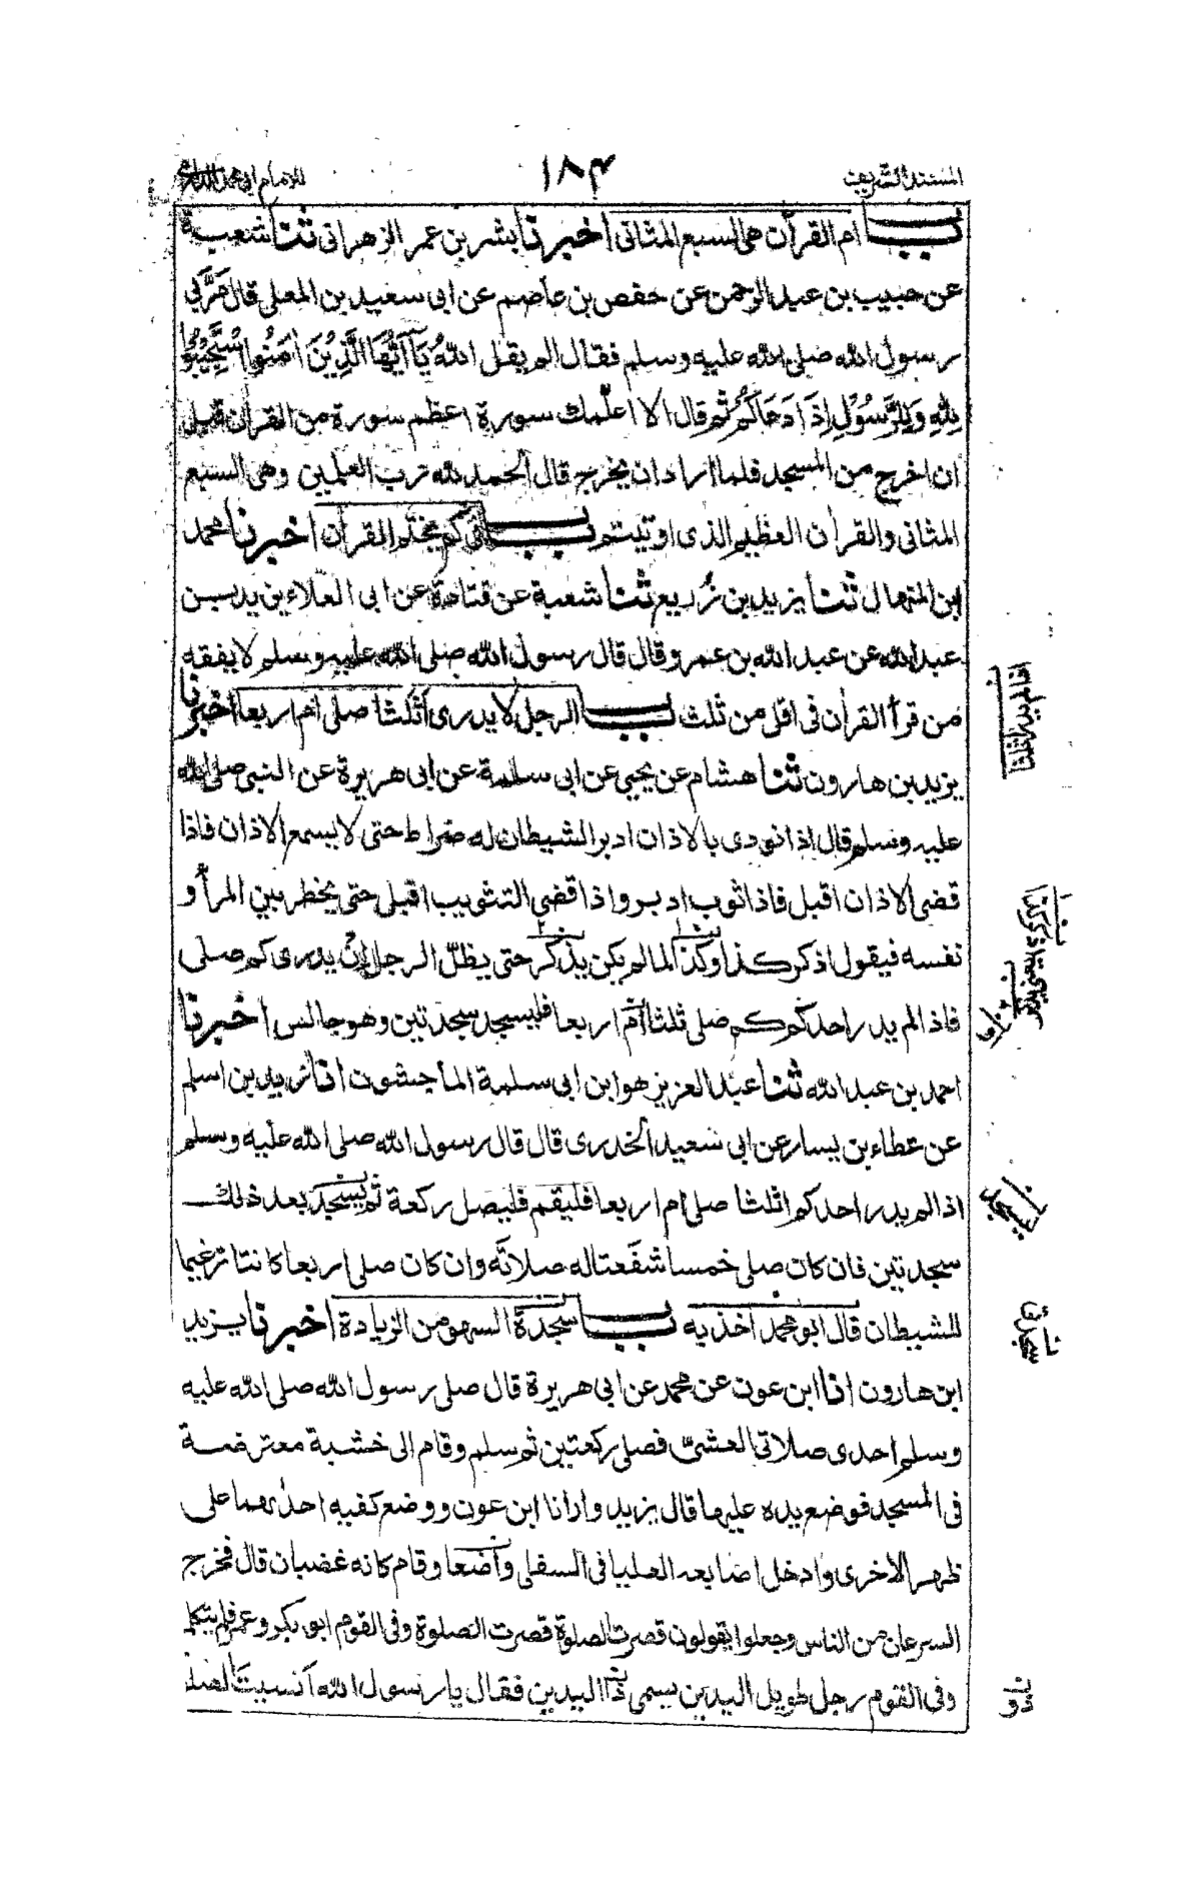 المسند الشريف
١٨٤
للامام ابي محمد الدارمي
باب ام القرآن هي السبع المثاني اخبرنا بشر بن عمر الزهراني ثنا شعبة
عن حبيب بن عبد الرحمن عن حفص بن عاصم عن ابي سعيد بن المعلى قال مَرَّ بي
رسول الله صلى الله عليه وسلم فقال الم يقل اللهُ يَآ اَيُّهَا الَّذِيْنَ اٰمَنُوا اسْتَجِيْبُوْا
لِلّٰهِ وَلِلرَّسُوْلِ اِذَا دَعَاكُمْ ثم قال الا اعلّمك سورة اعظم سورة من القرآن قبل
ان اخرج من المسجد فلما اراد ان يخرج قال الحمد لله رب العلمين وهي السبع
المثاني والقرأن العظيم الذي اوتيتم باب في كم يختم القرآن اخبرنا محمد
ابن المنهال ثنا يزيد بن زُريع ثنا شعبة عن قتادة عن ابي العلاء يزيد بن
عبد الله عن عبد الله بن عمرو قال قال رسول الله صلى الله عليه وسلم لا يفقه
من قرأ القرأن في اقل من ثلث باب الرجل لا يدري أثلثا صلى ام اربعا اخبرنا
يزيد بن هارون ثنا هشام عن يحيى عن ابي سلمة عن ابي هريرة عن النبي صلى الله
عليه وسلم قال اذا نودي بالاذان ادبر الشيطان له ضراط حتى لا يسمع الاذان فاذا
قضي الاذان اقبل فاذا ثوب ادبر واذا قضي التثويب اقبل حتى يخطر بين المرأ و
نفسه فيقول اذكر كذا وكذا لما لم يكن يذكر حتى يظلّ الرجل إن يدري كم صلى
فاذا لم يدر احدكم كم صلى ثلثا أم اربعا فليسجد سجدتين وهو جالس اخبرنا
احمد بن عبد الله ثنا عبد العزيز هو ابن ابي سلمة الماجشون انا زيد بن اسلم
عن عطاء بن يسار عن ابي سعيد الخدري قال قال رسول الله صلى الله عليه وسلم
اذا لم يدر احدكم اثلثا صلى ام اربعا فليقم فليصل ركعة ثم يسجد بعد ذلك
سجدتين فان كان صلى خمسا شفعتا له صلاته وان كان صلى اربعا كانتا ترغيما
للشيطان قال ابو محمد اخذ به باب سجدة السهو من الزيادة اخبرنا يزيد
ابن هارون انا ابن عون عن محمد عن ابي هريرة قال صلى رسول الله صلى الله عليه
وسلم احدى صلاتي العشىّ فصلى ركعتين ثم سلم وقام الى خشبة معترضة
في المسجد فوضع يده عليها قال يزيد وارانا ابن عون ووضع كفيه احدٰىهما على
ظهر الاخرى وادخل اصابعه العليا في السفلى واضعا وقام كانه غضبان قال فخرج
السرعان من الناس وجعلوا يقولون قصرت الصلوة قصرت الصلوة وفي القوم ابو بكر وعمر فلم يتكلما
وفي القوم رجل طويل اليدين يسمى ذا اليدين فقال يا رسول الله أنسيتَ الصلوة
يسجد
سجدتي
ذو